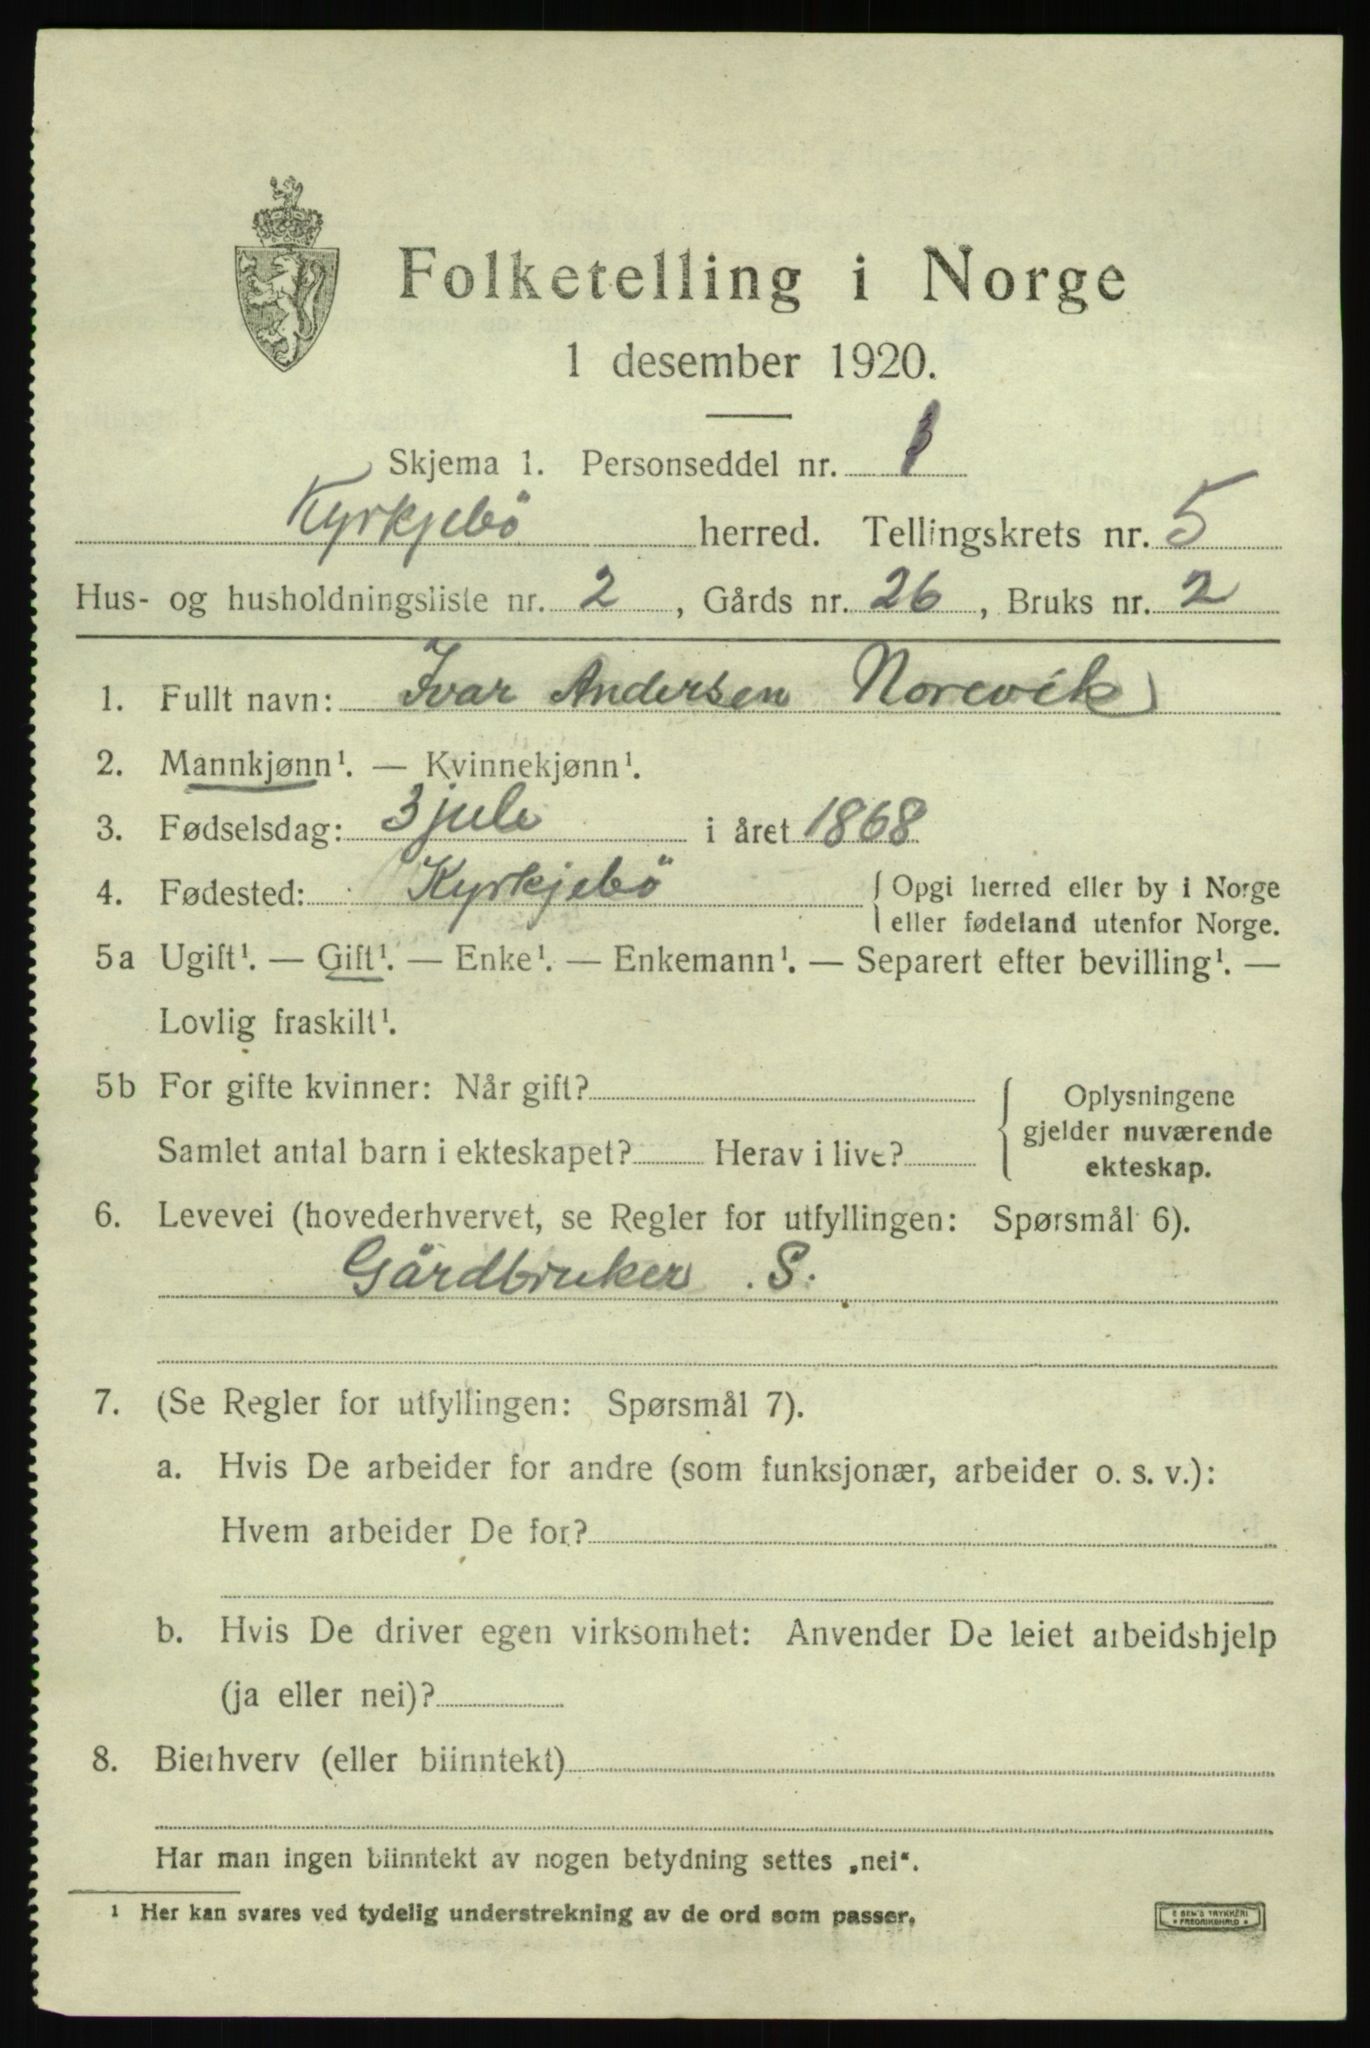 Folketelling i Norge
1 desember 1920.
Skjema 1. Personseddel nr.
Kyrkjebö herred. Tellingskrets nr. 5
Hus- og husholdningsliste nr. 2, Gårds nr. 26, Bruks nr. 2
1. Fullt navn: Ivar Andersen Norevik
2. Mannkjønn¹. — Kvinnekjønn¹.
3. Fødselsdag: 3 juli i året 1868
4. Fødested: Kyrkjebö { Opgi herred eller by i Norge
eller fødeland utenfor Norge.
5a Ugift¹. — Gift¹. — Enke¹. — Enkemann¹. — Separert efter bevilling¹. —
Lovlig fraskilt¹.
5b For gifte kvinner: Når gift?
Samlet antal barn i ekteskapet? Herav i live?
{ Oplysningene
gjelder nuværende
ekteskap.
6. Levevei (hovederhvervet, se Regler for utfyllingen: Spørsmål 6).
Gårdbruker. S.
7. (Se Regler for utfyllingen: Spørsmål 7).
a. Hvis De arbeider for andre (som funksjonær, arbeider o. s. v.):
Hvem arbeider De for?
b. Hvis De driver egen virksomhet: Anvender De leiet arbeidshjelp
(ja eller nei)?
8. Bierhverv (eller biinntekt)
Har man ingen biinntekt av nogen betydning settes „nei“.
¹ Her kan svares ved tydelig understrekning av de ord som passer.